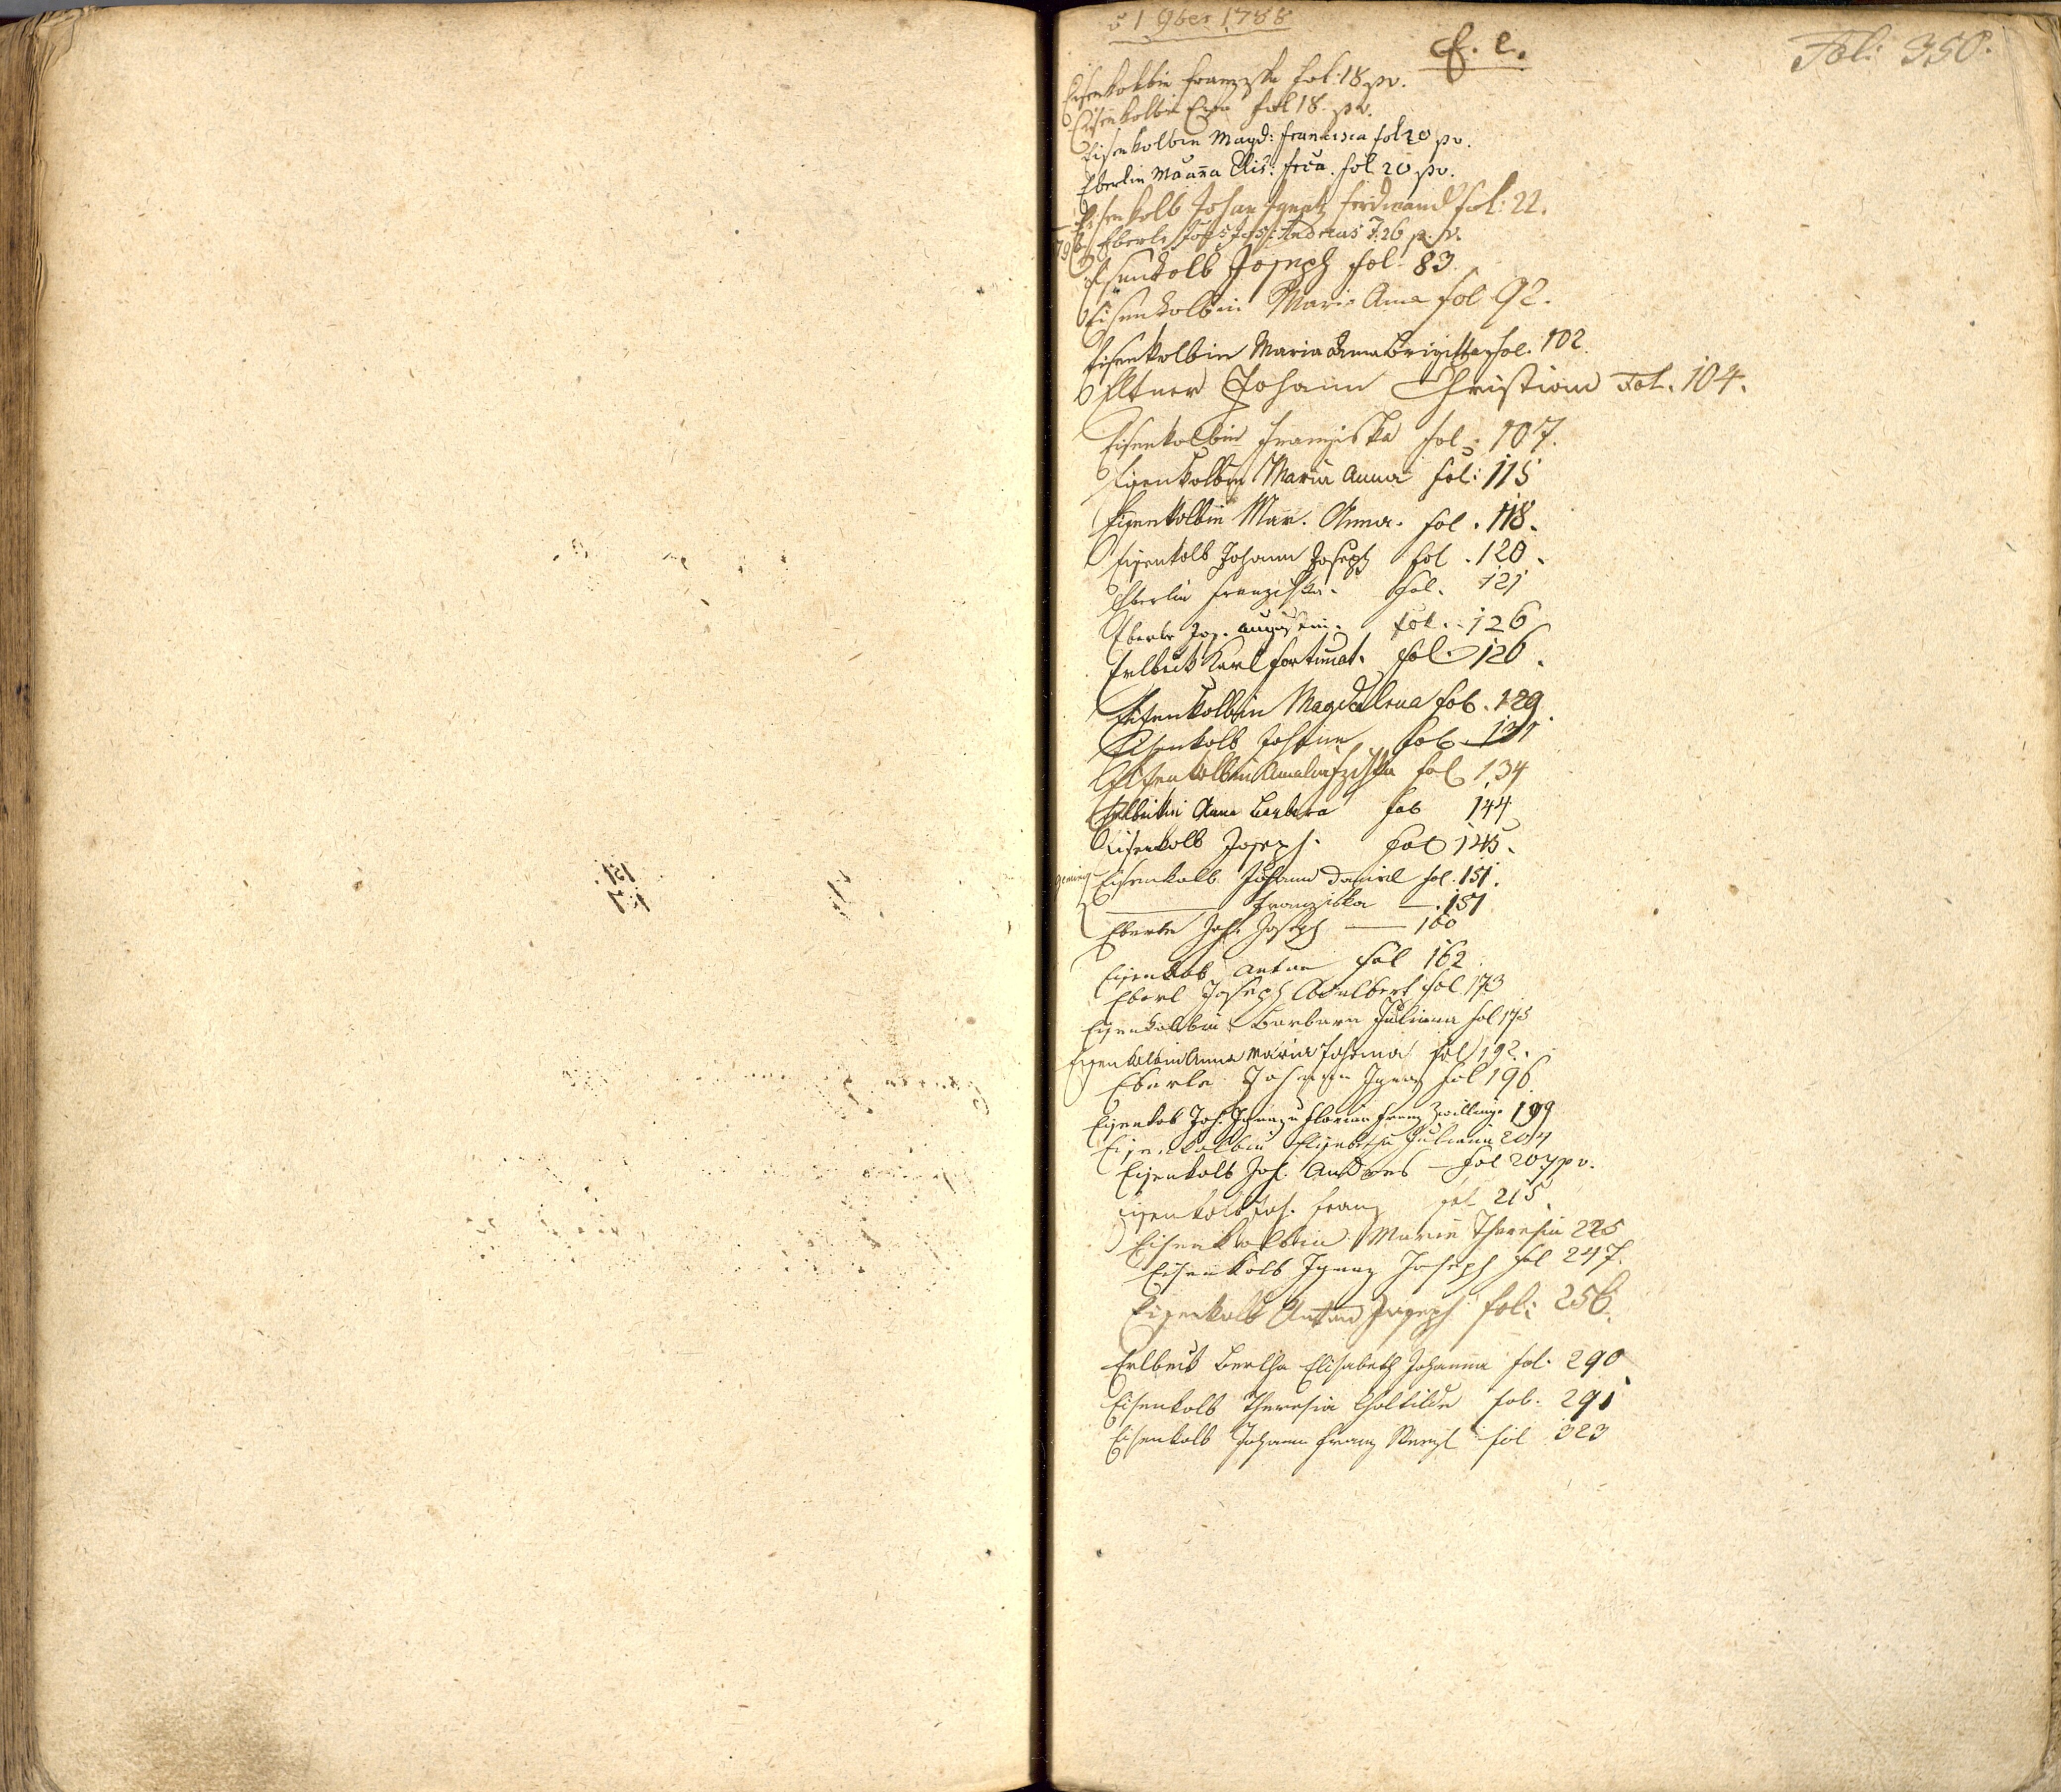 1 9ber 1788
E. e.
Fol: 350.
Eisenkolbin Franziska fol: 18 pv.
Eisenkolbin Eva fol 18. pv.
Eisenkolbin Magd: Francisca fol 20 pv.
Eberlin Mäanna Elis: frca. fol 20 pv.
Eisenkolb Johan Ignatz Ferdinand fol: 22.
Eberle Andreas F. 26 p. v.
Eisenkolb Joseph fol. 83
Eisenkolbin Maria Anna fol 92.
Eisenkolbin Maria Anna Brigitta fol. 102.
Eltner Johann Christian Fol. 104.
Eisenkolbin Franziska fol: 107.
Eisenkolbin Maria Anna fol: 115
Eisenkolbin Mar. Anna. fol. 118.
Eisenkolb Johann Joseph fol. 120.
Eberlin Franziska. fol. 121
Eberle Jos. Augustin. fol. 126
Erlbeck Karl Fortunat. fol. 126.
Eisenkolbin Magdalena fol. 129.
Eisenkolb Johann fol. 131
Eisenkolbin Amalia Fziska fol 134
Erlbeckin Anna Barbara fol 144
Eisenkolb Joseph. fol 145.
Eisenkolb Johann Daniel fol. 151.
——— Franziska —. 151
Eberle Joh. Joseph —— 160
Eisenkolb Anton fol 162
Eberl Joseph Adalbert fol. 173
Eisenkolbin Barbara Juliana fol 175
Eisenkolbin Anna Maria Johanna fol 192.
Eberle Johann Ignaz fol 196
Eisenkolb Joh. Ignaz u Florian Franz Zwilling. 199
Eisenkolbin Elisabetha Juliana 204
Eisenkolb Joh. Andreas — fol 207 pv.
Eisenkolb Joh. Franz fol 215.
Eisenkolbin Maria Theresia 225
Eisenkolb Ignaz Joseph fol 247.
Eisenkolb Anton Joseph fol: 256.
Erlbeck Bertha Elisabeth Johanna fol. 290
Eisenkolb Theresia Clotilde fol. 291
Eisenkolb Johann Franz Wenzl fol 323